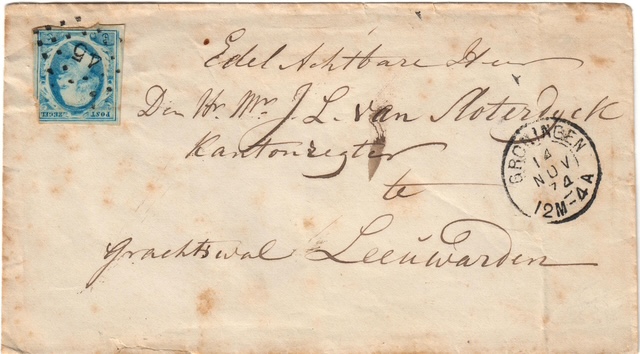 45
POST ZEGEL
Edel Achtbare Heer
Den Hr. Mr. J. L. van Sloterdyck
Kantonregter
te
Grachtswal Leeuwarden
GRONINGEN
14
NOV
74
12M-4A